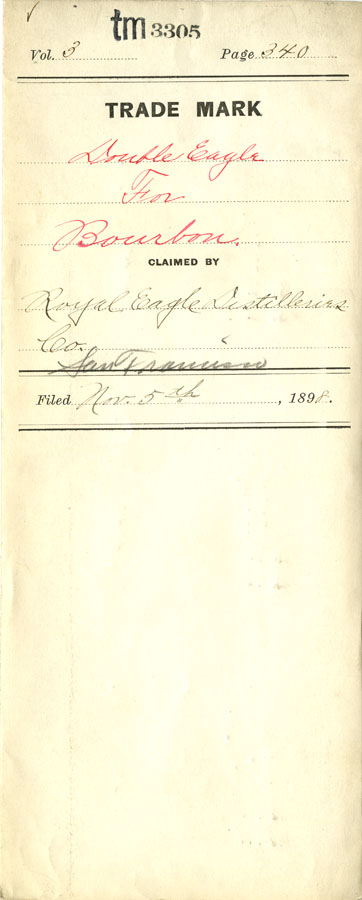 tm 3305
Vol. 3 Page 340
TRADE MARK
Double Eagle
For
Bourbon.
CLAIMED BY
Royal Eagle Distilleries
Co.
San Francisco
Filed Nov. 5th, 1898.